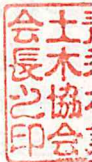 土木協会
会長之印